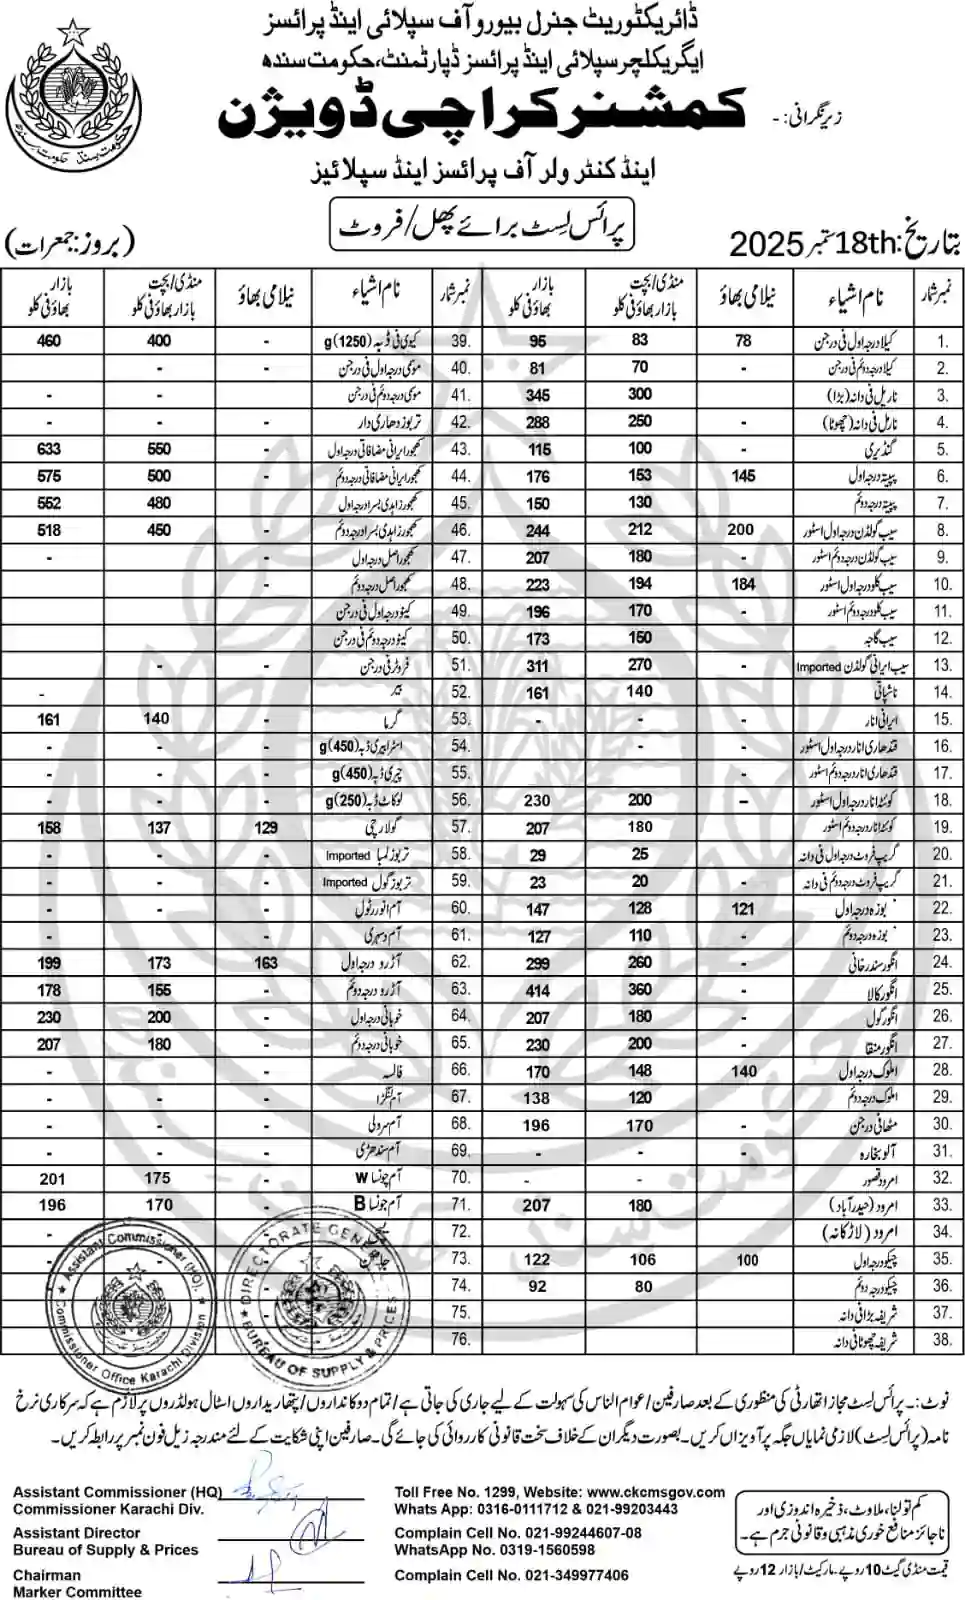 ڈائریکٹوریٹ جنرل بیورو آف سپلائی اینڈ پرائسز
ایگریکلچر سپلائی اینڈ پرائسز ڈپارٹمنٹ، حکومت سندھ
زیر نگرانی: -
کمشنر کراچی ڈویژن
اینڈ کنٹرولر آف پرائسز اینڈ سپلائیز
پرائس لسٹ برائے پھل/فروٹ
بتاریخ: 18th ستمبر 2025
(بروز: جمعرات)
نمبر شمار | نام اشیاء | نیلامی بھاؤ | منڈی/بچت بازار بھاؤ فی کلو | بازار بھاؤ فی کلو
1. کیلا درجہ اول فی درجن 78 83 95
2. کیلا درجہ دوئم فی درجن - 70 81
3. ناریل فی دانہ (بڑا) - 300 345
4. ناریل فی دانہ (چھوٹا) - 250 288
5. گنڈیری - 100 115
6. پپیتا درجہ اول 145 153 176
7. پپیتا درجہ دوئم - 130 150
8. سیب گولڈن درجہ اول اسٹور 200 212 244
9. سیب گولڈن درجہ دوئم اسٹور - 180 207
10. سیب کلو درجہ اول اسٹور 184 194 223
11. سیب کلو درجہ دوئم اسٹور - 170 196
12. سیب گاجہ - 150 173
13. سیب ایرانی گولڈن Imported - 270 311
14. ناشپاتی - 140 161
15. ایرانی انار - - -
16. قندھاری انار درجہ اول اسٹور - - -
17. قندھاری انار درجہ دوئم اسٹور - - -
18. کوئٹہ انار درجہ اول اسٹور – 200 230
19. کوئٹہ انار درجہ دوئم اسٹور - 180 207
20. گریپ فروٹ درجہ اول فی دانہ - 25 29
21. گریپ فروٹ درجہ دوئم فی دانہ - 20 23
22. بوزہ درجہ اول 121 128 147
23. بوزہ درجہ دوئم - 110 127
24. انگور سندرخانی - 260 299
25. انگور کالا - 360 414
26. انگور گول - 180 207
27. انگور منقا - 200 230
28. املوک درجہ اول 140 148 170
29. املوک درجہ دوئم - 120 138
30. مٹھا فی درجن - 170 196
31. آلو بخارہ - - -
32. امرود قصور - -
33. امرود (حیدرآباد) - 180 207
34. امرود (لاڑکانہ)
35. چیکو درجہ اول 100 106 122
36. چیکو درجہ دوئم - 80 92
37. شریفہ بڑا فی دانہ
38. شریفہ چھوٹا فی دانہ
نمبر شمار | نام اشیاء | نیلامی بھاؤ | منڈی/بچت بازار بھاؤ فی کلو | بازار بھاؤ فی کلو
39. کیوی فی ڈبہ (1250)g - 400 460
40. موسی درجہ اول فی درجن - -
41. موسی درجہ دوئم فی درجن - - -
42. تربوز دھاری دار - - -
43. کھجور ایرانی مضافاتی درجہ اول - 550 633
44. کھجور ایرانی مضافاتی درجہ دوئم - 500 575
45. کھجور زاہدی بسرا درجہ اول 480 552
46. کھجور زاہدی بسرا درجہ دوئم - 450 518
47. کھجور اصل درجہ اول - - -
48. کھجور اصل درجہ دوئم -
49. کینو درجہ اول فی درجن
50. کینو درجہ دوئم فی درجن
51. فروٹر فی درجن - - -
52. بیر -
53. گرما - 140 161
54. اسٹرابیری ڈبہ g(450) - - -
55. چیری ڈبہ g(450) - - -
56. لوکاٹ ڈبہ g(250) - - -
57. گولارچی 129 137 158
58. تربوز لمبا Imported - - -
59. تربوز گول Imported - - -
60. آم انور رٹول - - -
61. آم دسہری - -
62. آڑو درجہ اول 163 173 199
63. آڑو درجہ دوئم - 155 178
64. خوبانی درجہ اول - 200 230
65. خوبانی درجہ دوئم - 180 207
66. فالسہ - - -
67. آم لنگڑا - - -
68. آم سرولی - - -
69. آم سندھڑی - - -
70. آم چونسا W - 175 201
71. آم چونسا B - 170 196
72.
73.
74.
75.
76.
Assistant Commissioner (HQ)
Commissioner Office Karachi Division
DIRECTORATE GENERAL
BUREAU OF SUPPLY & PRICES
نوٹ:۔ پرائس لسٹ مجاز اتھارٹی کی منظوری کے بعد صارفین/عوام الناس کی سہولت کے لیے جاری کی جاتی ہے/تمام دوکانداروں/پتھاریداروں اسٹال ہولڈروں پر لازم ہے کہ سرکاری نرخ
نامہ (پرائس لسٹ) لازمی نمایاں جگہ پر آویزاں کریں۔ بصورت دیگر ان کے خلاف سخت قانونی کارروائی کی جائے گی۔ صارفین اپنی شکایت کے لئے مندرجہ زیل فون نمبر پر رابطہ کریں۔
Assistant Commissioner (HQ)
Commissioner Karachi Div.
Assistant Director
Bureau of Supply & Prices
Chairman
Marker Committee
Toll Free No. 1299, Website: www.ckcmsgov.com
Whats App: 0316-0111712 & 021-99203443
Complain Cell No. 021-99244607-08
WhatsApp No. 0319-1560598
Complain Cell No. 021-349977406
کم تولنا، ملاوٹ، ذخیرہ اندوزی اور
ناجائز منافع خوری مذہبی و قانونی جرم ہے۔
قیمت منڈی گیٹ 10 روپے۔ مارکیٹ/بازار 12 روپے